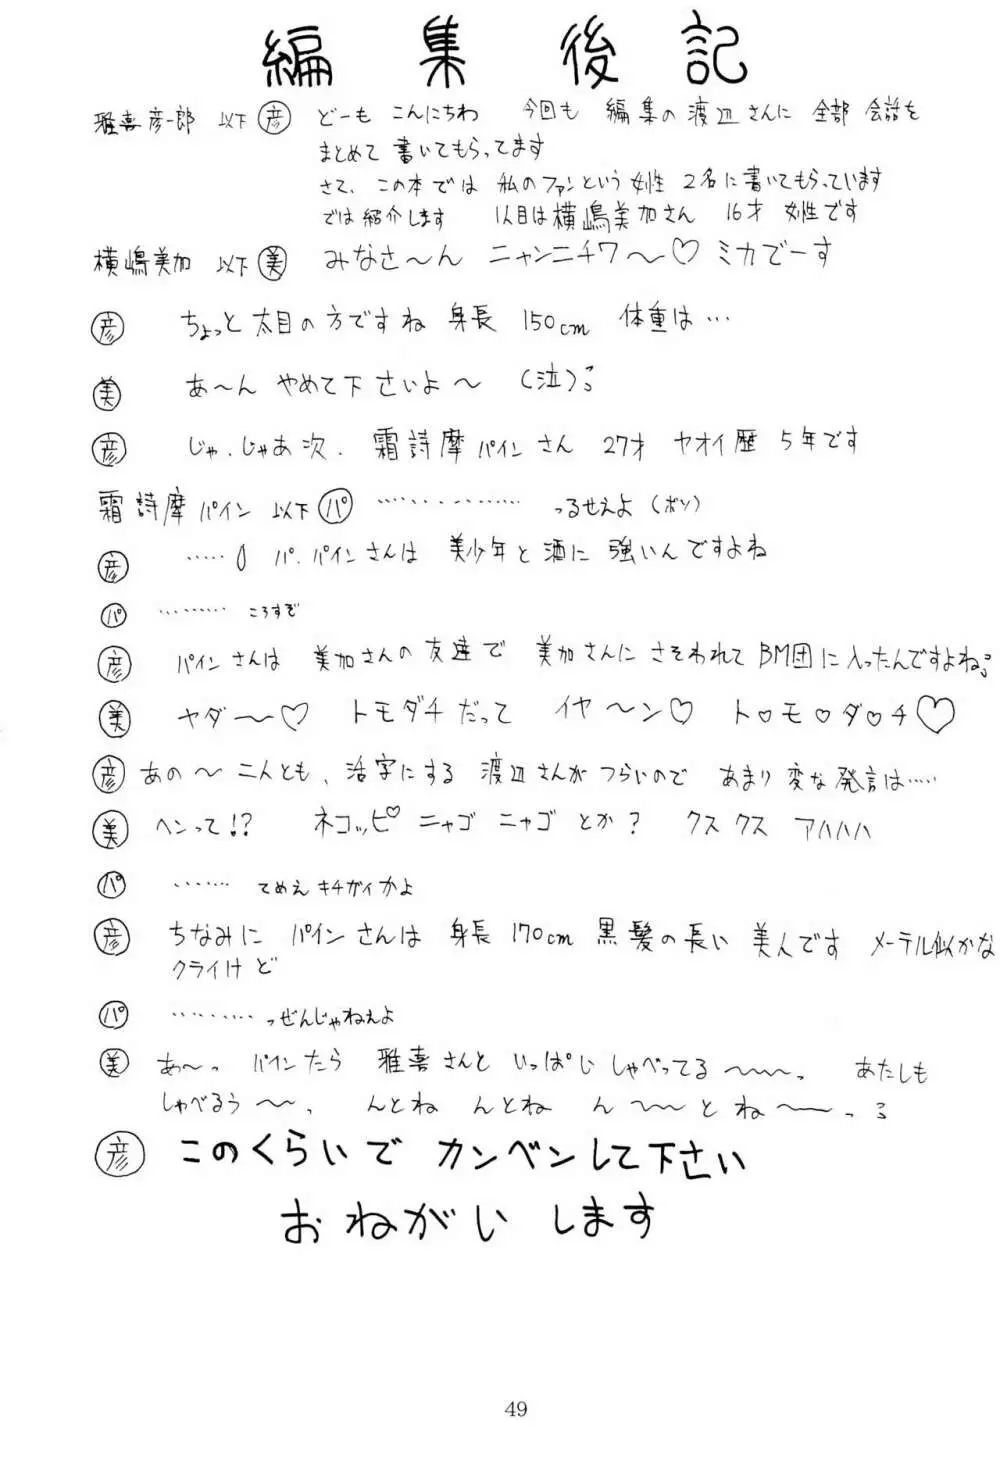 編集後記
雅喜彦一郎 以下彦 どーも こんにちわ 今回も 編集の渡辺さんに 全部 会話を
まとめて 書いてもらってます
さて、この本では 私のファンという 女性 2名に書いてもらっています
では紹介します 1人目は横嶋美加さん 16才 女性です
横嶋美加 以下美 みなさ〜ん ニャンニチワ〜♡ ミカでーす
彦 ちょっと太目の方ですね 身長 150cm 体重は…
美 あ〜ん やめて下さいよ〜 (泣)
彦 じゃ.じゃあ次. 霜詩摩パインさん 27才 ヤオイ歴 5年です
霜詩摩パイン 以下パ ……………… っるせえよ(ボソ)
彦 …… パ.パインさんは 美少年と酒に 強いんですよね
パ ……… ころすぞ
彦 パインさんは 美加さんの友達で 美加さんに さそわれて BM団に入ったんですよね
美 ヤダ〜♡ トモダチだって イヤ〜ン♡ ト♡モ♡ダ♡チ♡
彦 あの〜 二人とも、活字にする 渡辺さんがつらいので あまり変な発言は……
美 ヘンって!? ネコッピ♡ニャゴ ニャゴ とか? クスクス アハハハ
パ ……… てめえキチガイかよ
彦 ちなみに パインさんは 身長 170cm 黒髪の長い 美人です メーテル似かな
クライけど
パ ………… っぜんじゃねぇよ
美 あ〜っ パインたら 雅喜さんと いっぱい しゃべってる〜〜〜っ あたしも
しゃべるぅ〜〜っ んとね んとね ん〜〜とね〜〜っ
彦 このくらいで カンベンして下さい
おねがい します
49